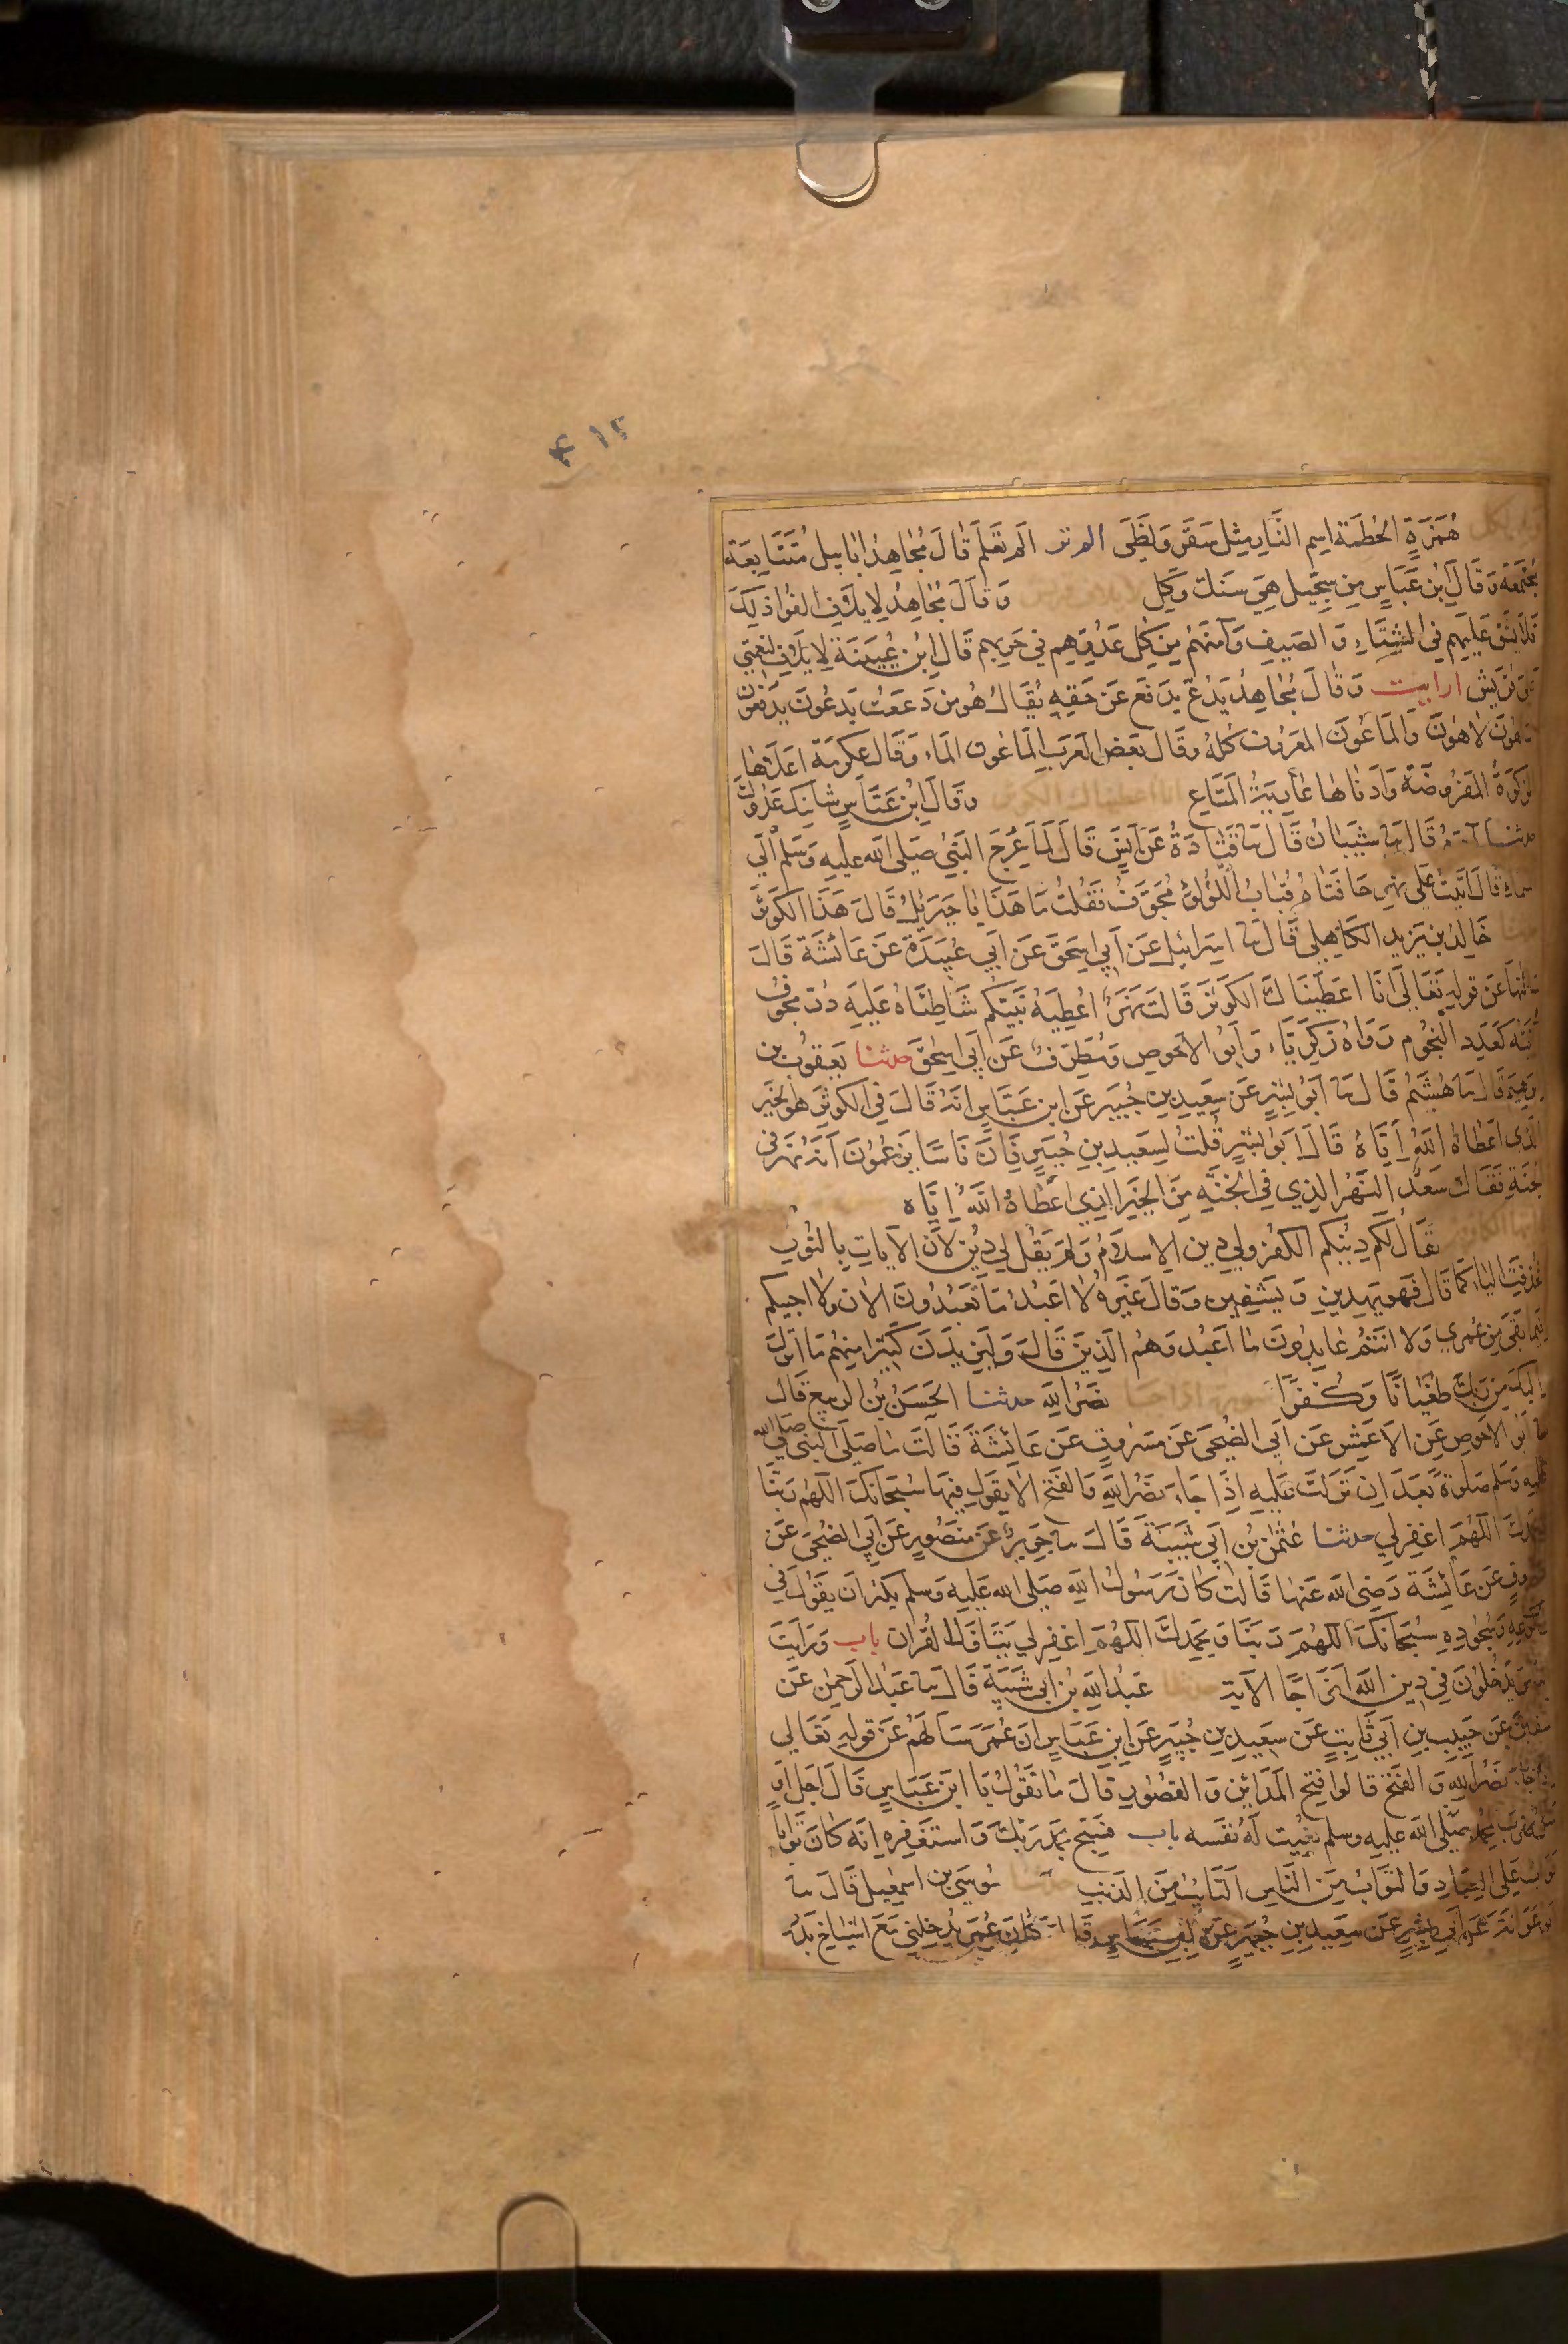 ۴۱۲
ويل لكل هُمَزَةٍ الحُطَمَة اسم النَّارِ مِثل سَقَرَ وَلَظَى الم تر الم تَعلَم قَالَ مُجَاهِدٌ ابَابِيل مُتَتَابِعَة
مجتمعة وَقَالَ ابْن عَبَّاسٍ مِن سِجِّيل هِيَ سَنك وَكِل لايلاف قريش وَقَالَ مُجَاهِدٌ لِايلَافِ الفُوا ذلِكَ
فَلَا يَشُقّ عَلَيهِم فِي الشِّتَاءِ وَ الصَيفِ وَآمَنَهُم مِن كُلّ عَدُوِّهِم فِي حَرَمِهِم قَالَ ابْن عُيَيْنَة لِايلَافِ لنعمَتِي
على قُرَيش ارايت وَقَالَ مُجَاهِدٌ يَدُعّ يَدفَع عَن حَقّهِ يُقَالُ هُوَ مِن دَعَعتُ يَدعُونَ يَدفَعُون
سَاهُونَ لَاهُونَ وَالمَاعُونَ المَعرُوف كُلّهُ وَقَالَ بَعض العَرَبِ المَاعُون المَاء وَقَالَ عِكرِمَة اعلَاهَا
الزكوةُ المَفرُوضَة وَادنَاهَا عَارِيَةُ المَتَاعِ انا اعطيناك الكوثر وَقَالَ ابْن عَبَّاسٍ شَانِئك عَدُوك
حدثنا آدَمُ قَالَ ثنا شَيبَانُ قَالَ ثنا قَتَادَةُ عَن انَس قَالَ لَمّا عُرِجَ النَبيّ صَلى الله عليه وَسَلم الَى
السماءِ قَالَ اتَيتُ عَلَى نهرٍ حَافتَاهُ قِبَابُ اللُّؤلُؤ مُجَوَّفٌ فَقُلتُ مَا هَذَا يَا جِبرَيلُ قَالَ هَذَا الكَوثَر
حدثنا خَالِدُ بن يَزِيد الكَاهِلِي قَالَ ثنا اسرَائِيل عَن ابِي اسحَقَ عَن ابِي عُبَيدَة عَن عَائشَة قَالَ
سالتها عَن قولِهِ تَعَالَى انَا اعطَينَاكَ الكَوثَر قَالَت نَهَرٌ اُعطِيَهُ نَبِيّكُم شَاطِئَاهُ عَلَيهِ دُرّ مجوف
آنيتُه كَعَدَدِ النُّجُومِ رَوَاهُ زَكَرِيَّاء وَ ابُو الاحوَصِ وَمُطَرِّفٌ عَن ابِي اسحَقَ حدثنا يَعقُوب بن
ابرهيم قَالَ ثنا هُشَيمٌ قَالَ ثنا ابُو بِشرٍ عَن سَعِيدِ بنِ جُبَيرٍ عَن ابنِ عَبَّاسٍ انهُ قَالَ في الكَوثَرِ هُوَ الخَير
الذِي اعطَاهُ اللَّهُ ايَّاهُ قَالَ ابُو بِشرٍ قُلتُ لِسَعِيدِ بنِ جُبَيرٍ فَانَّ نَاسًا يَزعُمُونَ انَهُ نَهَر في
الجَنّةِ فَقَالَ سَعيد النَهَرُ الذِي فِي الجَنَّةِ مِنَ الخَيرِ الذِي اعطَاهُ اللَّهُ ايَّاه
يُقَالُ لَكُم دِينكُم الكُفر وَلِي دِين الاسلَامُ وَلَم يَقُل لِي دِينِي لانّ الايَاتِ بِالنُّونِ
فحُذِفَتِ اليَاءُ كَمَا قَالَ فَهوَ يَهدِينِ وَ يَشفِين وَقَالَ غَيرُهُ لَا اعبُدُ مَا تَعبُدُونَ الان وَلَا اجيبكم
فِيمَا بَقِيَ مِن عُمرِي وَلَا انتُم عَابِدُونَ مَا اعبُد وَهُم الَّذِينَ قَالَ وَلَيَزِيدَنَّ كَثِيرًا مِنهُم مَا انزل
اليكَ مِن ربِّك طُغيَانًا وَكُفرًا سورة اذا جا نَصرُ اللهِ حدثنا الحَسَن بنُ الربيع قَال
ثنا ابُو الاحوَصِ عَن الاعمش عَن ابي الضُحَى عَن مَسرُوقٍ عَن عَائشَةَ قَالَت مَا صَلَّى النبي صَلى الله
عليه وَسَلم صَلوةً بَعدَ ان نَزلَت عَلَيهِ اذَا جَاء نَصرُ اللهِ وَالفَتح الَّا يَقُول فِيهَا سُبحَانَكَ اللهُم ربنَا
وبحمدِكَ اللّهُمَ اغفِر لِي حدثنا عُثمَن بن ابي شَيبَة قَالَ ثنا جَرِيرٌ عَن مَنصُورٍ عَن ابي الضُّحَى عَن
مسروقٍ عَن عَائِشَة رَضِيَ الله عَنهَا قَالَت كَانَ رَسُولُ اللهِ صَلى الله عَلَيهِ وَسلم يُكثِر ان يَقُولَ فِي
ركوعِهِ وَسُجُودِهِ سُبحَانَكَ اللّهُمَ رَبّنَا وَبِحَمدِكَ اللّهُمَ اغفِر لِي يَتَاوّل القُران باب وَرَايتَ
الناس يَدخُلونَ فِي دِينِ اللَّه افوَاجًا الاية حدثنا عَبدُ اللهِ بن ابي شَيبَة قَالَ ثنا عَبدُ الرَحمن عَن
سفين عَن حَبِيبِ بنِ ابي ثَابِتٍ عَن سَعِيدِ بنِ جُبَيرٍ عَن ابنِ عَبَّاسٍ انَّ عُمَر سَالهُم عَن قولِهِ تَعَالي
اذا جَاء نَصرُ اللهِ وَ الفَتح قَالوا فتح المَدَائِن وَ القصُورِ قَالَ مَا تَقُولُ يَا ابنَ عَبَّاسٍ قَالَ اجَل او
مثل ضرب لمحمد صَلى الله عليهِ وسلم نُعِيت لَهُ نَفسه باب فسَبح بحَمدِ رَبّك وَ استَغفِره انَّه كَانَ توّابا
توابٌ عَلَى العِبَادِ وَ التَوَّابُ مِن النَّاسِ التَائِبُ مِن الذنبِ حدثنا مُوسَى بن اسمعيل قَالَ ثنا
ابو عَوَانَة عَن ابي بِشرٍ عَن سَعِيدِ بنِ جُبَيرٍ عَن ابن عباس قال كَانَ عُمَر يُدخِلنِي مَعَ اشيَاخ بَدر